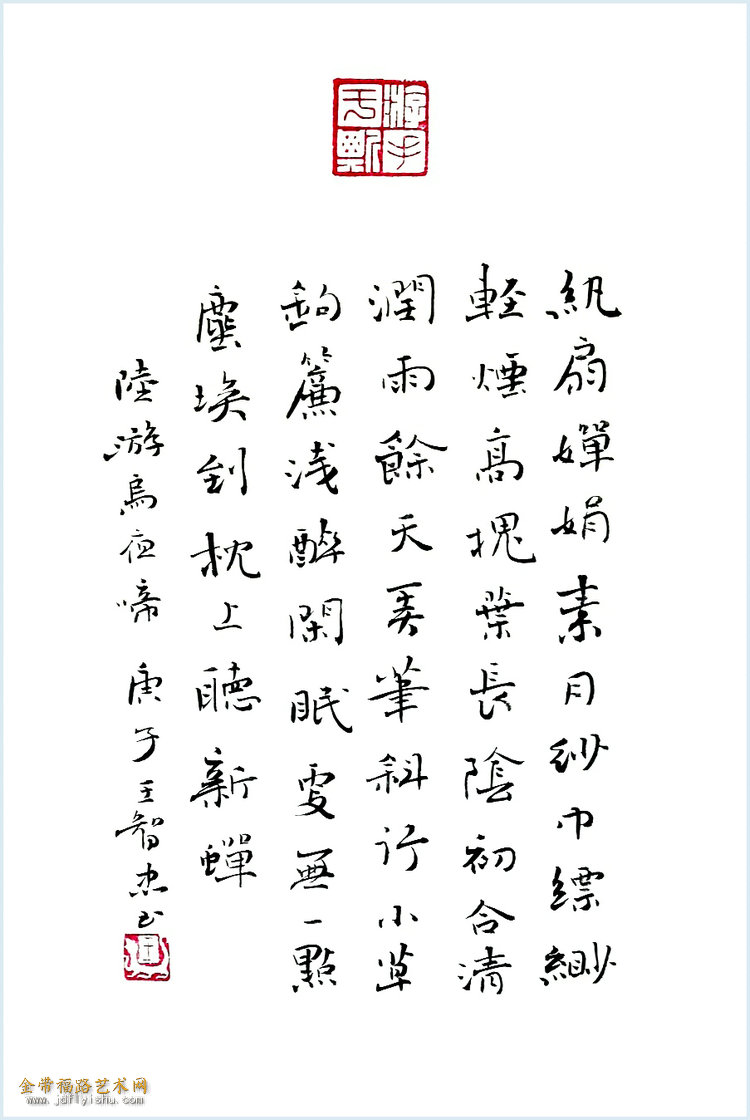 紈扇嬋娟素月紗巾縹緲
軽煙高槐葉長陰初合清
潤雨餘天弄筆斜行小草
鉤簾浅醉閑眠更無一點
塵埃到枕上聽新蟬
陸游烏夜啼 庚子王智杰书
金带福路艺术网
www.jdflyishu.com